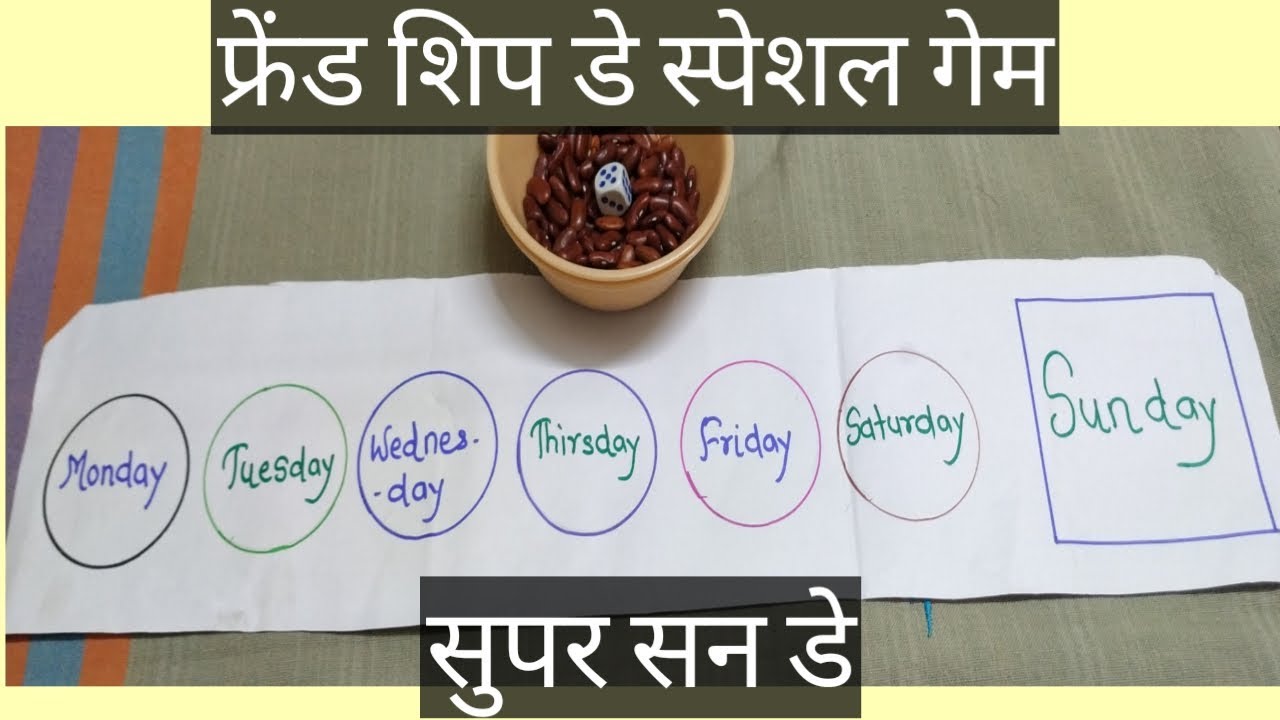 फ्रेंड शिप डे स्पेशल गेम
Monday
Tuesday
Wednes-
-day
Thirsday
Friday
Saturday
Sunday
सुपर सन डे